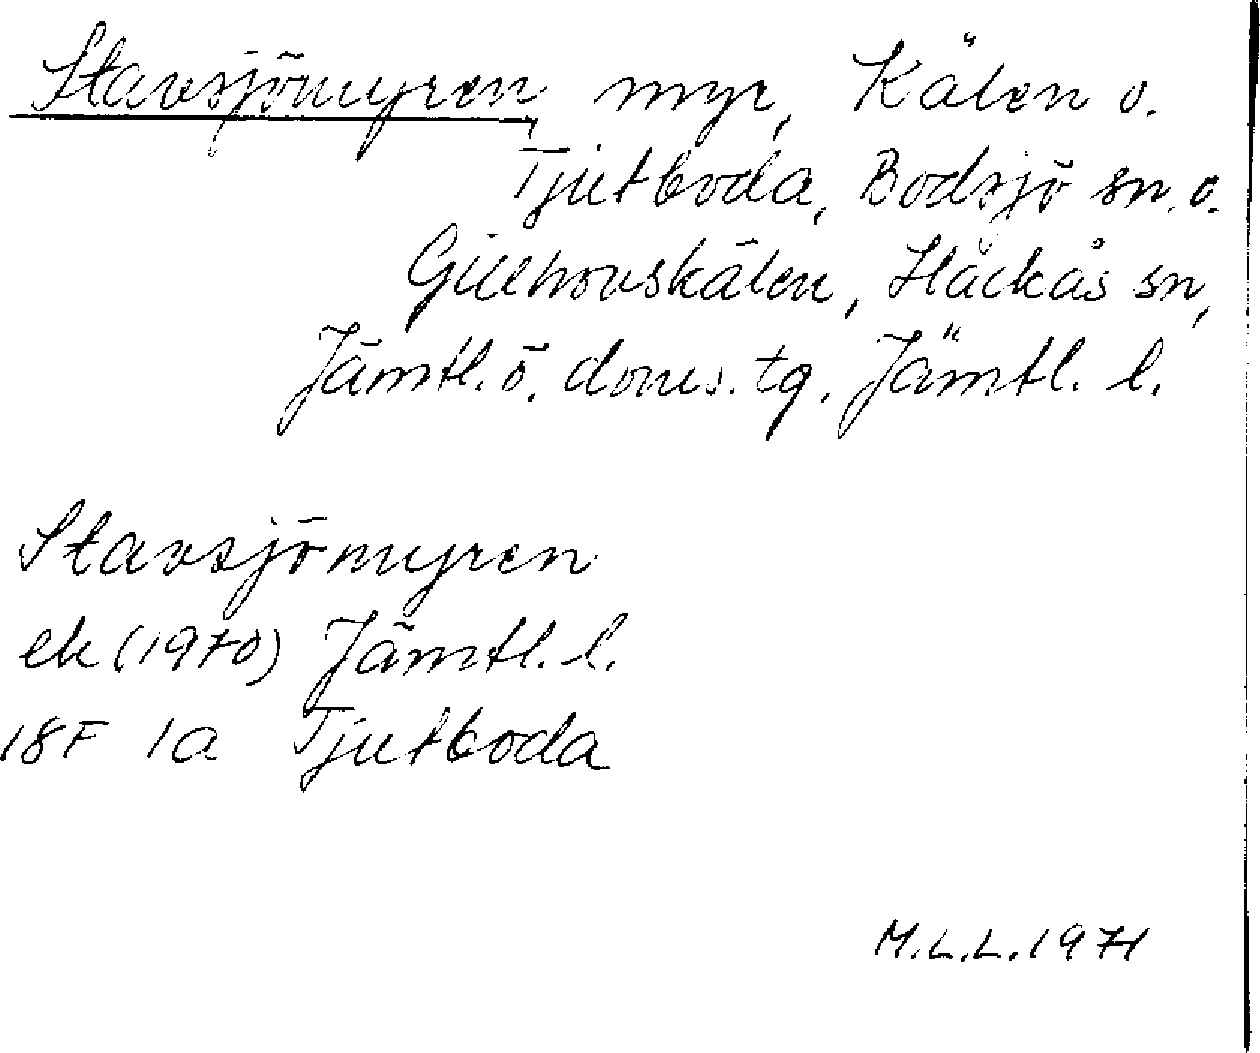 Stavsjömyren, myr, Kälen o.
Tjutboda, Bodsjö sn. o.
Gillhovskälen, Hackås sn,
Jämtl. ö. doms. tg. Jämtl. l.
Stavsjömyren
ek (1970) Jämtl. l.
18F 1a Tjutboda
M.L.L. 1971